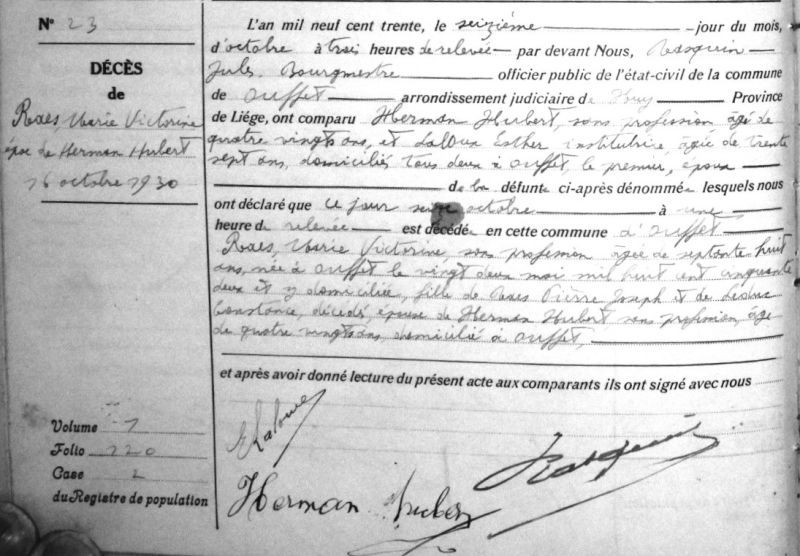 N° 23
DÉCÈS
de
Raes Marie Victorine
épse de Herman Hubert
16 octobre 1930
Volume 7
Folio 220
Case 2
du Registre de population
L'an mil neuf cent trente, le seizième jour du mois,
d'octobre à trois heures de relevée par devant Nous, Rasquin
Jules, Bourgmestre officier public de l'état-civil de la commune
de Ouffet arrondissement judiciaire de Huy Province
de Liége, ont comparu Herman Hubert, sans profession âgé de
quatre vingts ans, et Laloux Esther institutrice âgée de trente
sept ans, domiciliés tous deux à Ouffet, le premier, époux
de la défunte ci-après dénommée lesquels nous
ont déclaré que ce jour seize octobre à une
heure de relevée est décédé en cette commune d'Ouffet
Raes, Marie Victorine, sans profession âgée de septante huit
ans, née à Ouffet le vingt deux mai mil huit cent cinquante
deux et y domiciliée, fille de Raes Pierre Joseph et de
Constance, décédés, épouse de Herman Hubert sans profession, âgé
de quatre vingts ans domicilié à Ouffet,
et après avoir donné lecture du présent acte aux comparants ils ont signé avec nous
E Laloux
Rasquin
Herman Hubert